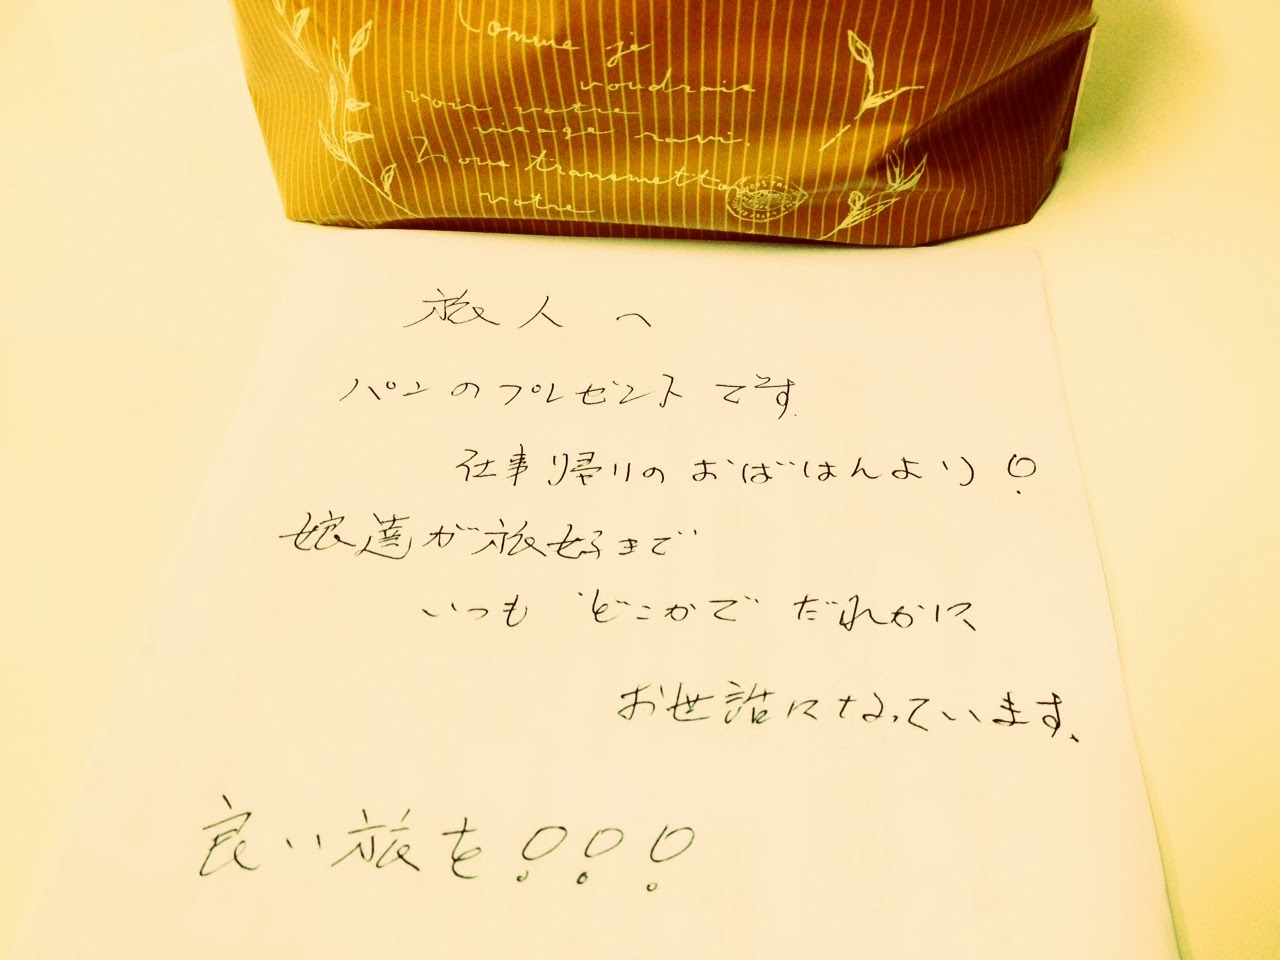 Comme je
voudrais
voir votre
visage ravi.
Nous transmettons
votre
旅人へ
パンのプレゼントです
仕事帰りのおばはんより!
娘達が旅好きで
いつもどこかでだれかに
お世話になっています、
良い旅を!!!